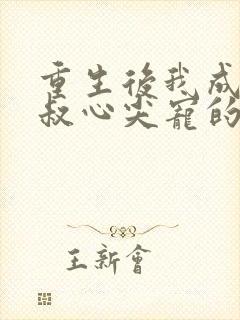 重生後我成
叔心尖寵的
王新會